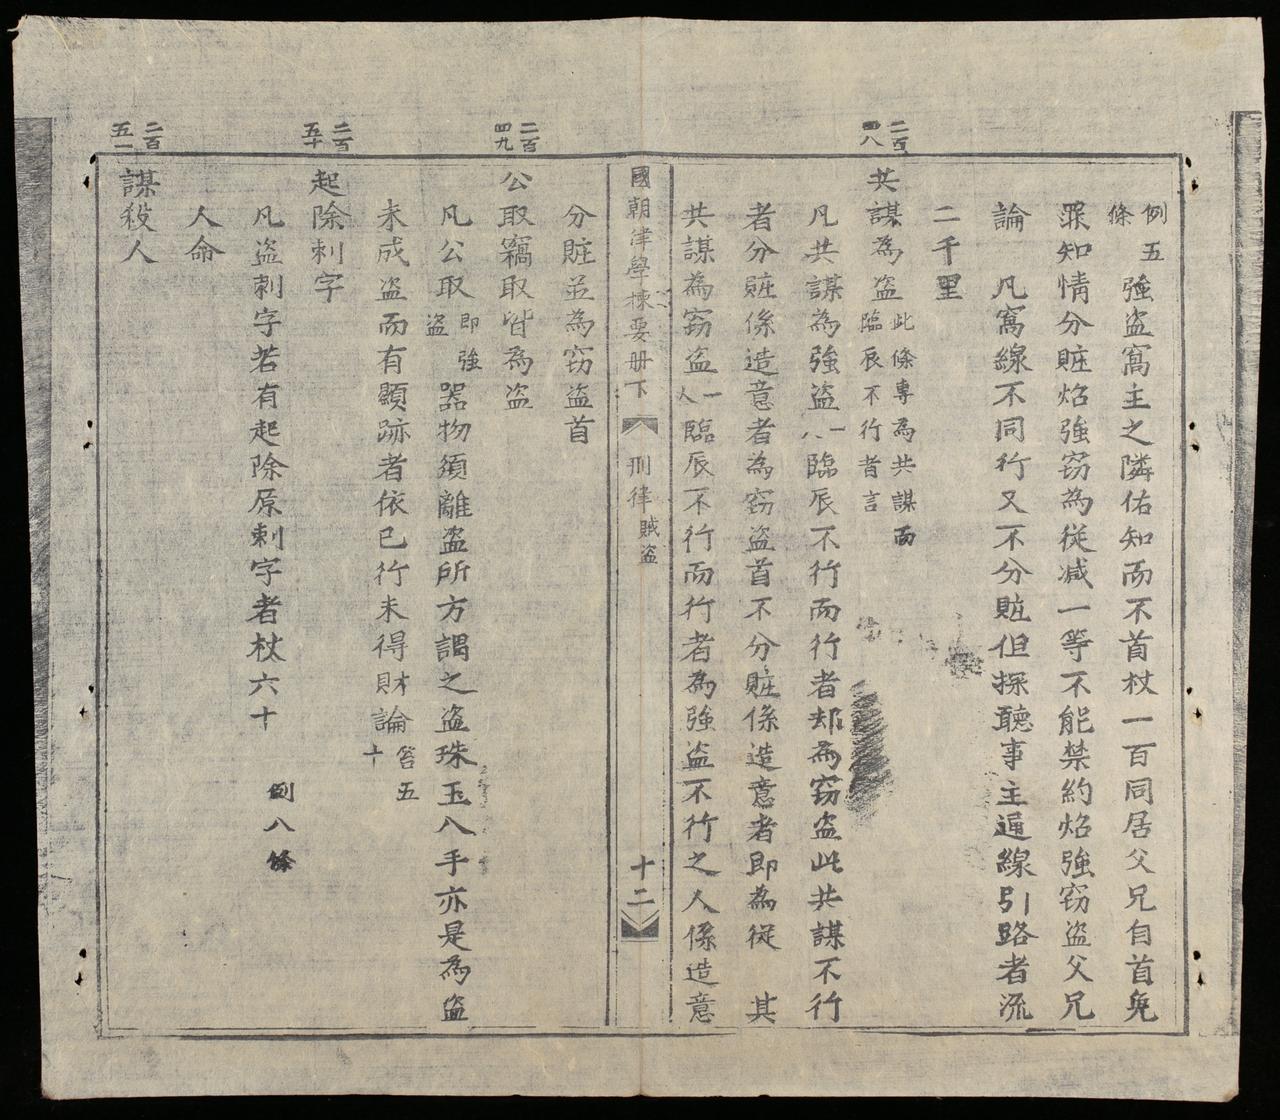 例五條　強盜窩主之隣佑知而不首杖一百同居父兄自首免
罪知情分賍炤強窃為從减一等不能禁約炤強窃盜父兄
論　凡窩線不同行又不分賍但探聽事主通線引路者流
二千里
二百四八
共謀為盜此條專為共謀而臨辰不行者言
凡共謀為強盜一人臨辰不行而行者却為窃盜此共謀不行
者分賍係造意者為窃盜首不分賍係造意者即為從　其
共謀為窃盜一人臨辰不行而行者為強盜不行之人係造意
國朝律學揀要册下　刑律賊盜　十二
分賍並為窃盜首
二百四九
公取竊取皆為盜
凡公取即強盜器物須離盜所方謂之盜珠玉入手亦是為盜
未成盜而有顯跡者依已行未得財論笞五十
二百五十
起除刺字
凡盜刺字若有起除原刺字者杖六十　例八條
人命
二百五一
謀殺人